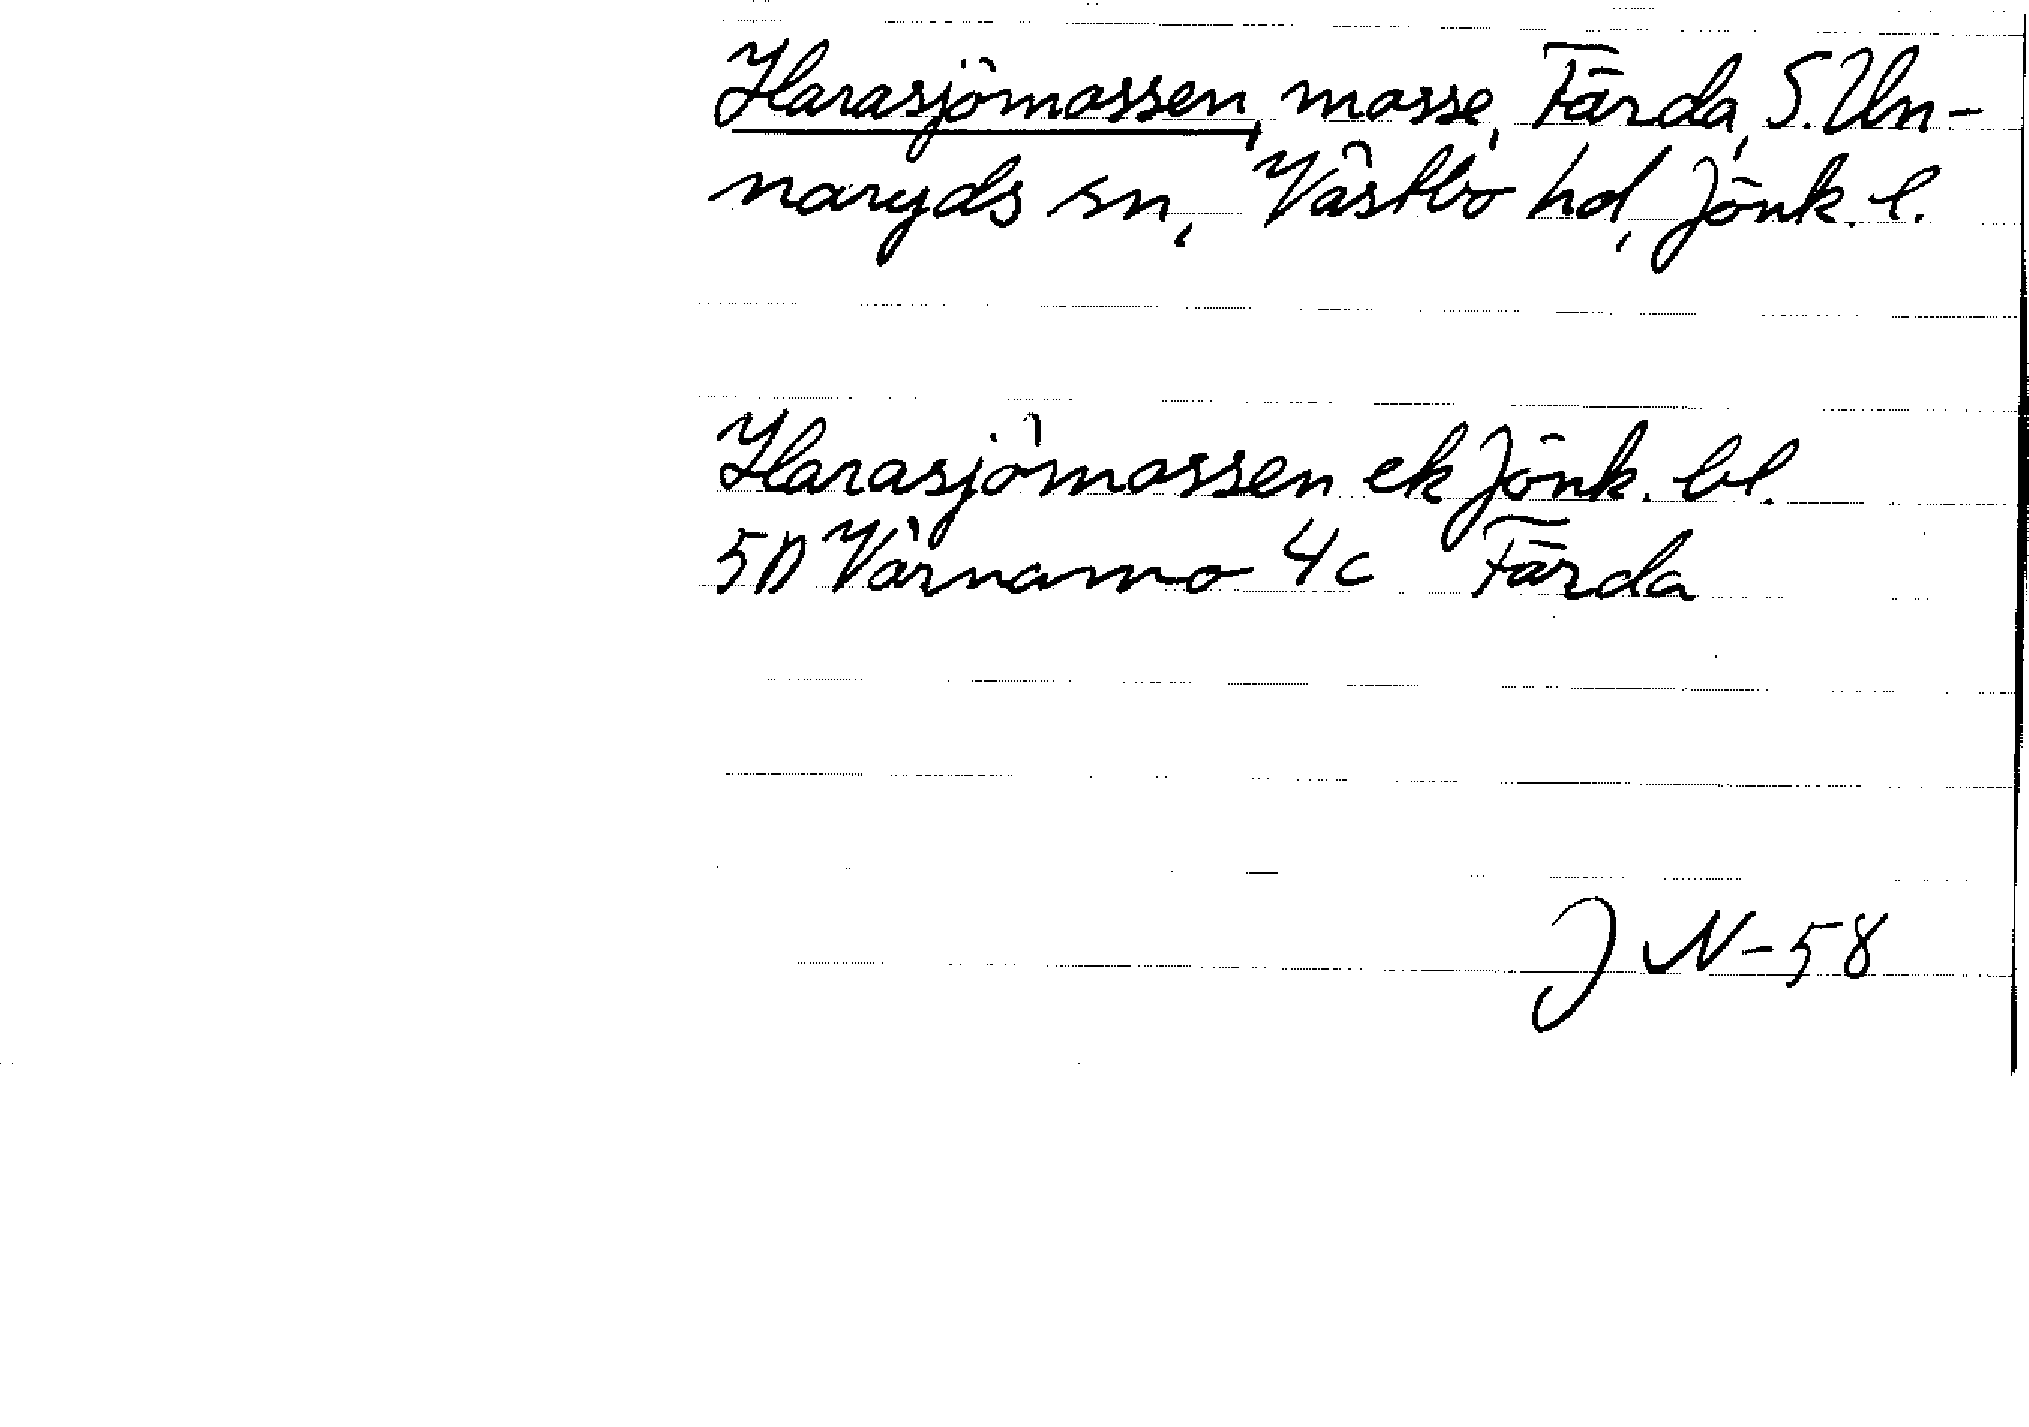 Harasjömossen, mosse, Färda, S. Un-
naryds sn, Västbo hd, Jönk. l.
Harasjömossen ek Jönk. bl.
5D Värnamo 4c Färda
J N-58